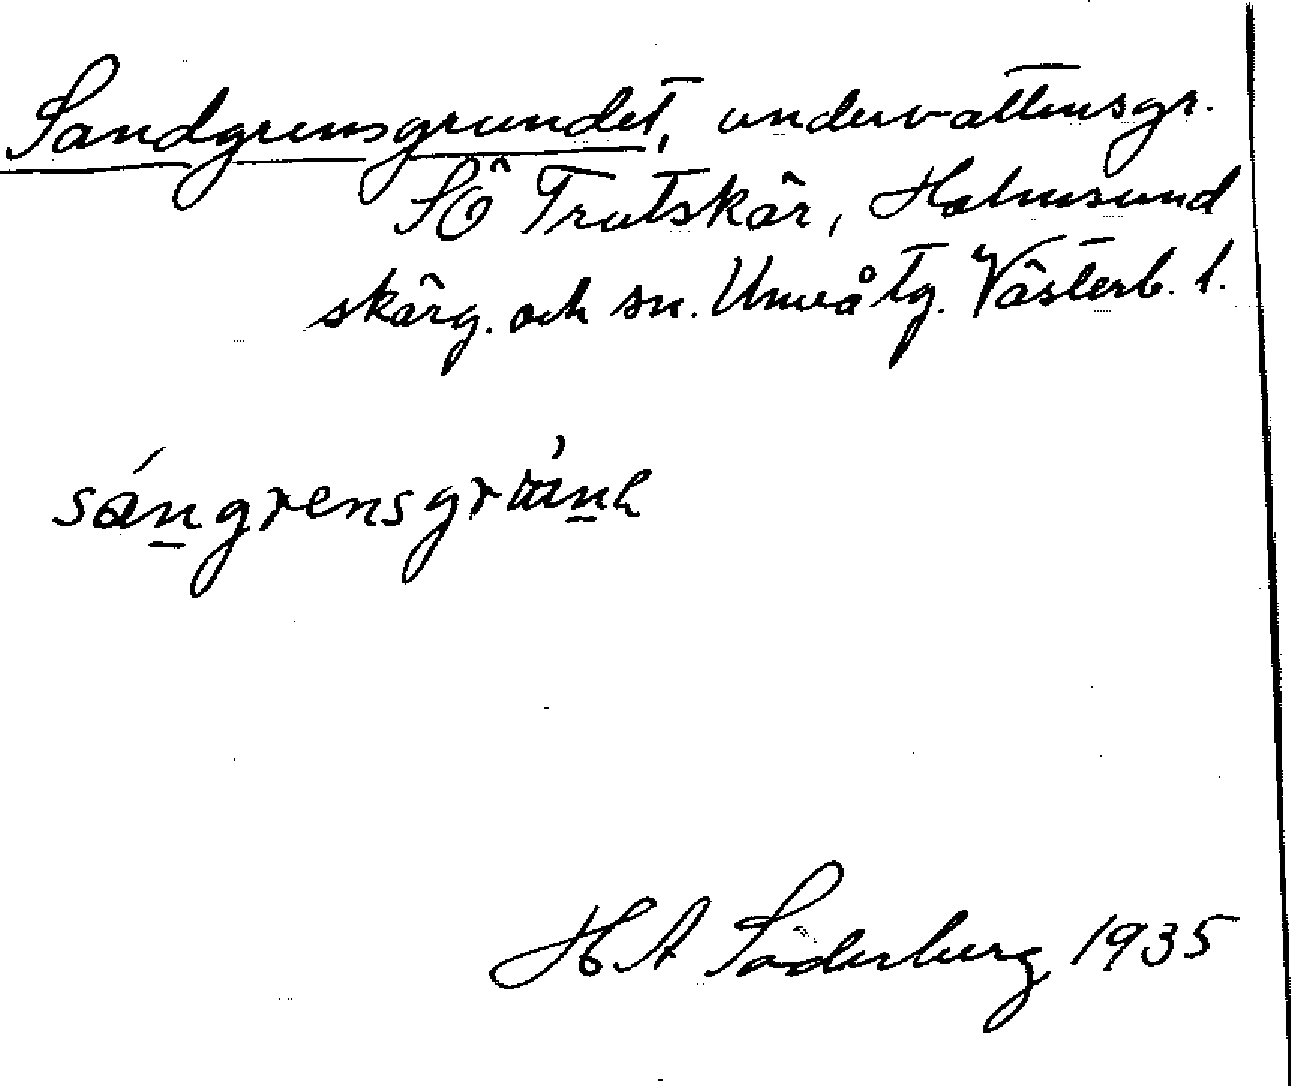 Sandgrensgrundet, undervattensgr.
SÖ Trutskär, Holmsund
skärg. och sn. Umeå tg. Västerb. l.
sángrensgrṹnḷ
H A Söderberg 1935